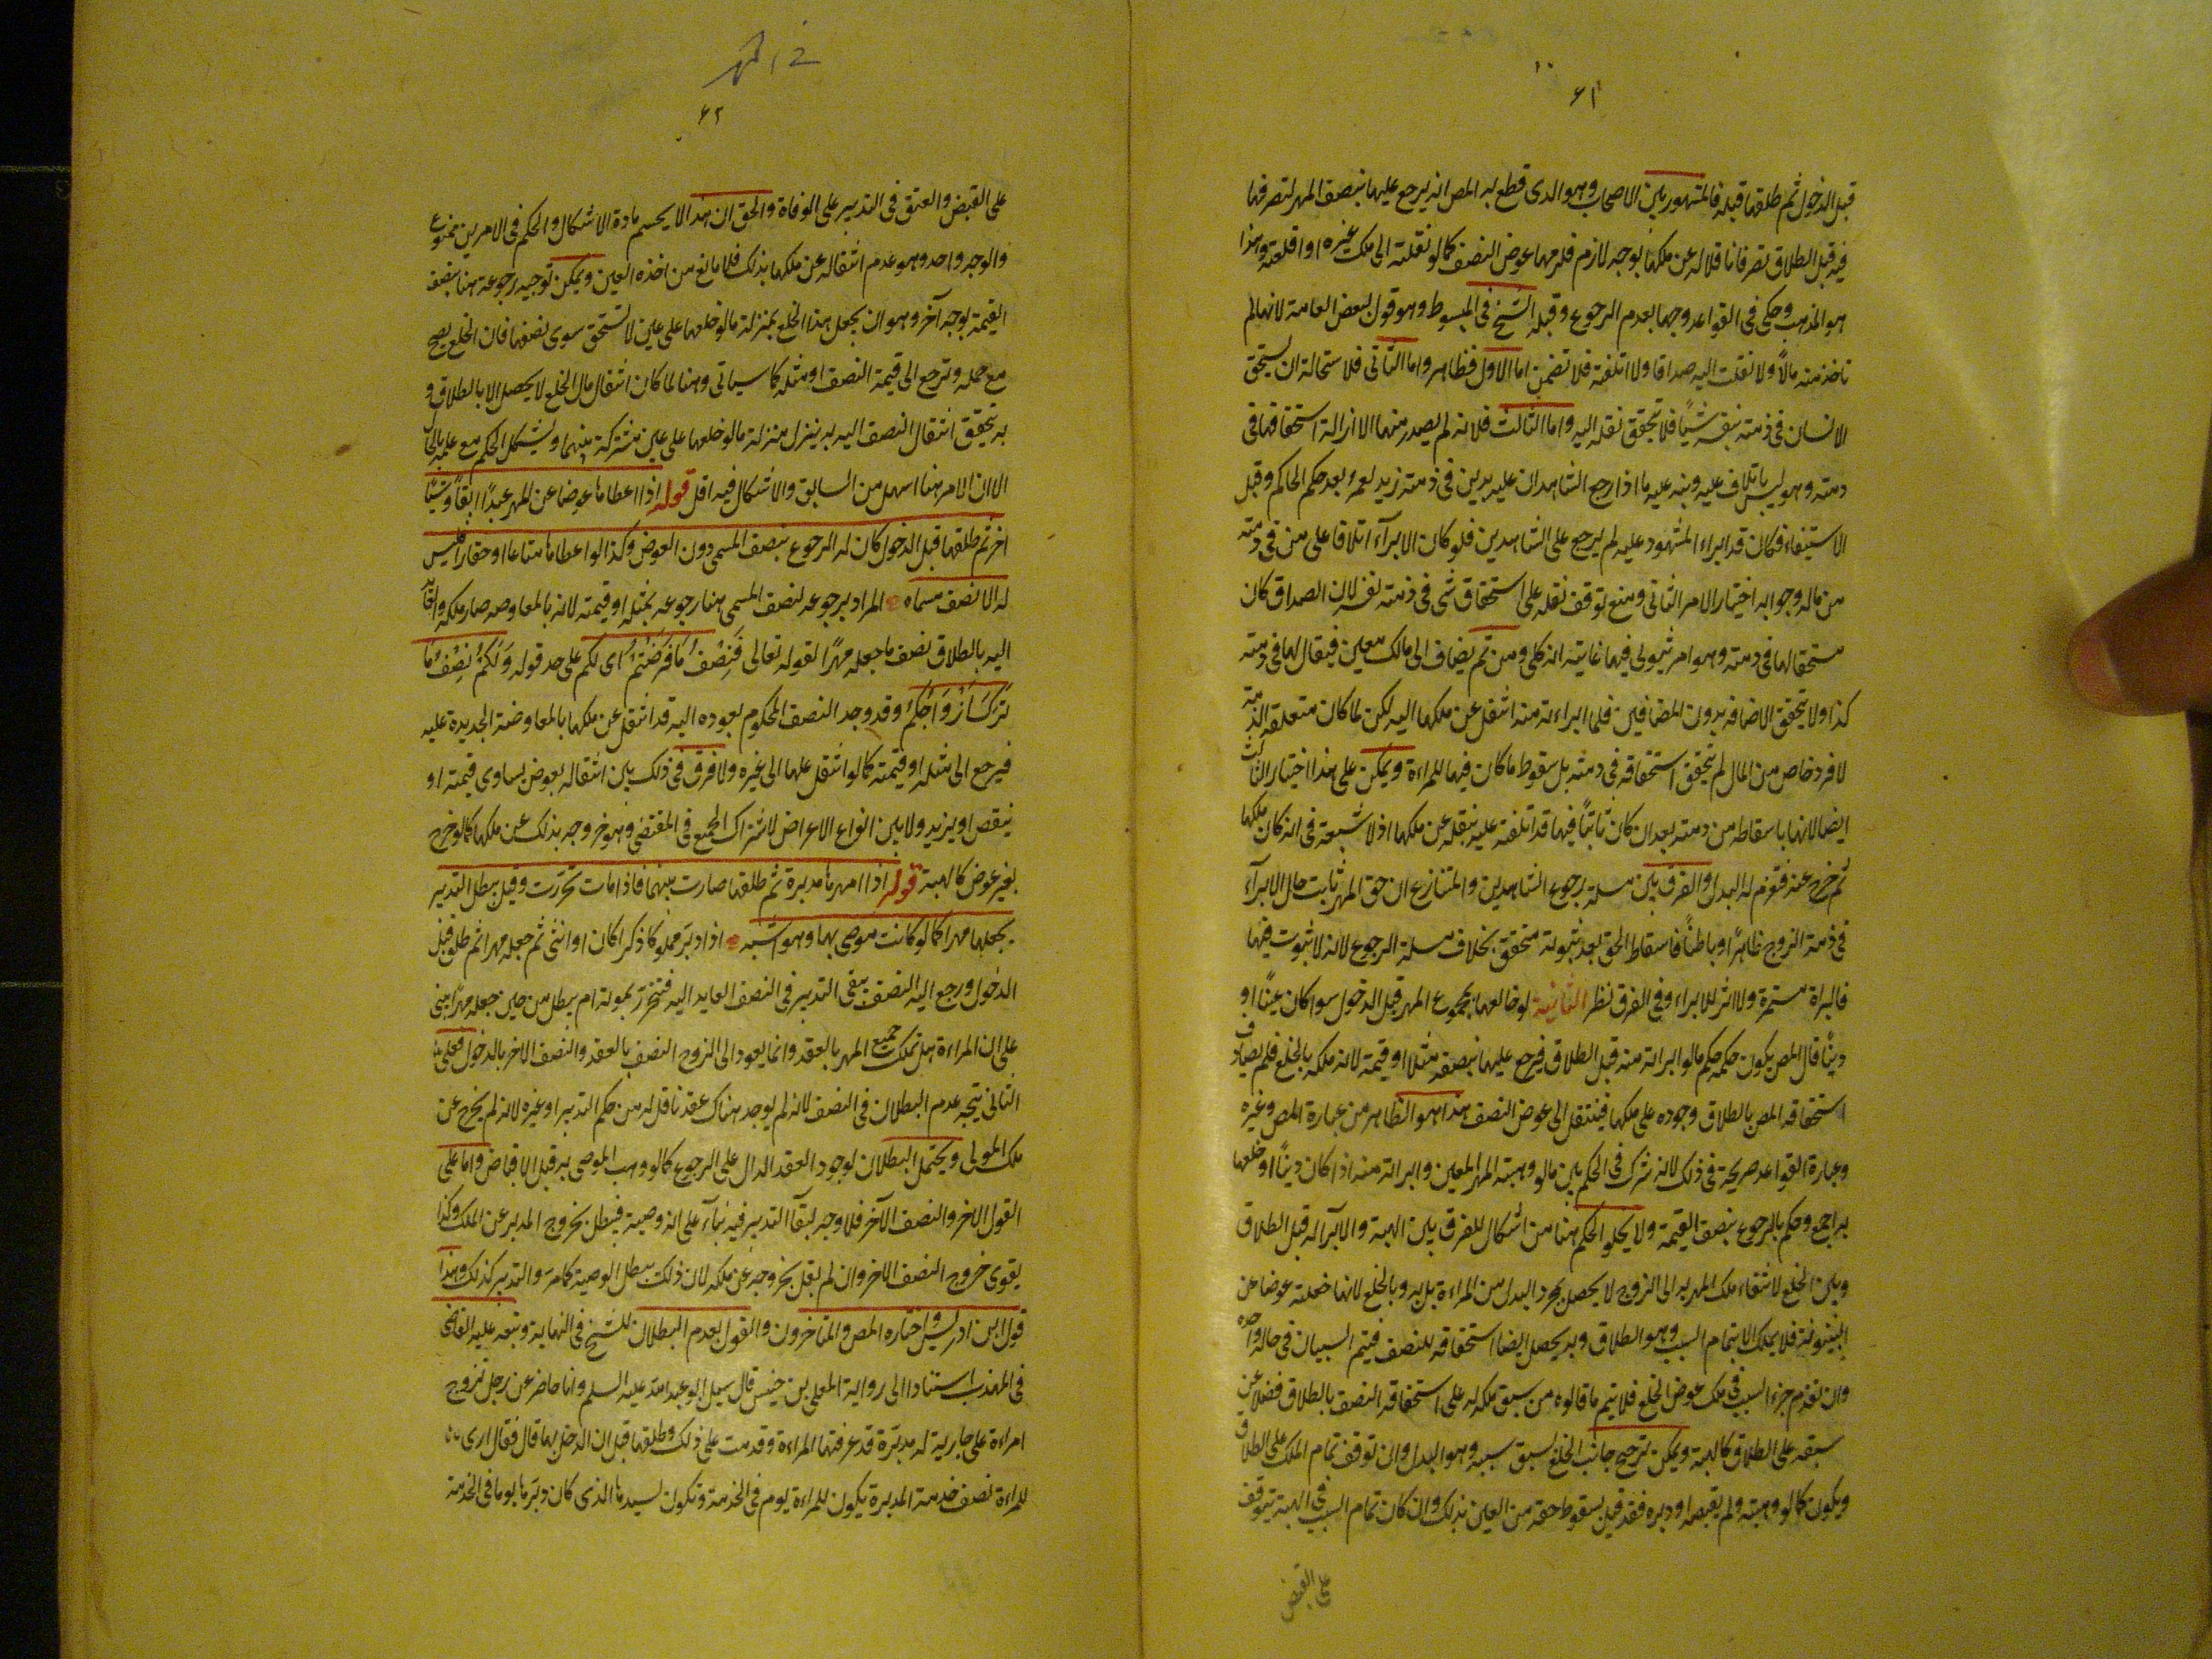 ٦١
قبل الدخول ثم طلقها قبله فالمشهور بين الاصحاب وهو الذى قطع به المص انه يرجع عليها بنصف المهر لتصرفها
فيه قبل الطلاق تصرفا ناقلا له عن ملكها بوجه لازم فلزمها عوض النصف كما لو نقلته الى ملك غيره او اتلفته وهذا
هو المذهب وحكى فى القواعد وجها بعدم الرجوع وقبله الشيخ فى المبسوط وهو قول لبعض العامة لانها لم
تاخذ منه مالاً ولا نقلت اليه صداقا ولا اتلفته فلا تضمن اما الاول فظاهر واما الثانى فلاستحالة ان يستحق
الانسان فى ذمة نفسه شيًا فلا يتحقق نقله اليه واما الثالث فلانه لم يصدر منها الا ازالة استحقاقها فى
ذمته وهو ليس باتلاف عليه ونبه عليه ما اذا رجع الشاهدان عليه بدين فى ذمة زيد لعمرو بعد حكم الحاكم وقبل
الاستيفاء فكان قد ابراء المشهود عليه لم يرجع على الشاهدين فلو كان الابرآء اتلافا على من فى ذمته
من ماله وجوابه اختيار الامر الثانى ومنع توقف نقله على استحقاق شى فى ذمة نفسه لان الصداق كان
مستحقا لها فى ذمته وهو امر ثبوتى فيها غايته انه كلى ومن ثم يضاف الى مالك معين فيقال لها فى ذمته
كذا ولا يتحقق الاضافه بدون المضافين فلما ابراءته منه انتقل عن ملكها اليه لكن لما كان متعلقه الذمة
لا فرد خاص من المال لم يتحقق استحقاقه فى ذمته بل سقوط ما كان فيها للمراءة ويمكن على هذا اختيار الثالث
ايضا لانها باسقاطه من ذمته بعد ان كان ثابتاً فيها قد اتلفته عليه بنقله عن ملكها اذ لا شبهة فى انه كان ملكها
ثم خرج عنه فلزم له البدل والفرق بين مسلة رجوع الشاهدين والمتنازع ان حق المهر ثابت حال الابرآء
فى ذمة الزوج ظاهرًا وباطناً فاسقاط الحق بعد ثبوته متحقق بخلاف مسلة الرجوع لانه لا ثبوت فيها
فالبراة مستمرة ولا اثر للابراء وفى الفرق نظر الثانية لو خالعها بمجموع المهر قبل الدخول سوا كان عيناً او
دينًا قال المص يكون حكمه حكم ما لو ابراته منه قبل الطلاق فيرجع عليها بنصفه مثلا او قيمة لانه ملكه بالخلع فلم يصادف
استحقاقه المص بالطلاق وجوده على ملكها فينتقل الى عوض النصف هذا هو الظاهر من عبارة المص وغيره
وعبارة القواعد صريحة فى ذلك لانه شرك فى الحكم بين ما لو وهبته المهر المعين وابراته منه اذا كان دينًا او خلعها
به اجمع وحكم بالرجوع بنصف القيمة ولا يخلو الحكم هنا من اشكال للفرق بين الهبة والابرآ له قبل الطلاق
وبين الخلع لانتفاء ملك المهر به الى الزوج لا يحصل بمجرد البذل من المراءة بل به وبالخلع لانها جعلته عوضا عن
البينونة فلا يملك الا بتمام السبب وهو الطلاق وبه يحصل ايضا استحقاقه للنصف فيتم السببان فى حالة واحده
وان تقدم جزء السبب فى ملك عوض الخلع فلا يتم ما قالوه من سبق ملكه له على استحقاقه النصف بالطلاق فضلا عن
سبقه على الطلاق كالهبة ويمكن ترجيح جانب الخلع لسبق سببه وهو البذل وان توقف تمام الملك على الطلاق
ويكون كما لو وهبته ولم يقبضه او دبره فقد قيل بسقوط حقه من العين بذلك وان كان تمام السبب فى الهبة يتوقف
على القبض
٦٢
على القبض والعتق فى التدبير على الوفاة والحق ان هذا الا يحسم مادة الاشكال والحكم فى الامرين ممنوع
والوجه واحد وهو عدم انتقاله عن ملكها بذلك فلا مانع من اخذه العين ويمكن توجيه رجوعه هنا بنصف
القيمة بوجه آخر وهو ان يجعل هذا الخلع بمنزلة ما لو خلعها على عين لا تستحق سوى نصفها فان الخلع يصح
مع جهله وترجع الى قيمة النصف او مثله كما سياتى وهنا لما كان انتقال مال الخلع لا يحصل الا بالطلاق و
به يتحقق انتقال النصف اليه به ينزل منزلة ما لو خلعها على عين مشتركة بينهما ويشكل الحكم مع علمه بالحال
الا ان الامر هنا اسهل من السابق والاشكال فيه اقل قوله اذا اعطاها عوضا عن المهر عبدًا ابقاً وشيًا
اخر ثم طلقها قبل الدخول كان له الرجوع بنصف المسمى دون العوض وكذا لو اعطاها متاعا او عقارا فليس
له الا نصف مسماه المراد برجوعه لنصف المسمى هنا رجوعه بمثله او قيمته لانه بالمعاوضه صار ملكه والعايد
اليه بالطلاق نصف ما جعله مهرًا لقوله تعالى فَنِصْفُ مَا فَرَضْتُمْ اى لكم على حد قوله وَلَكُمْ نِصْفُ مَا
تَرَكَ اَزْوَاجُكُمْ وقد وجد النصف المحكوم بعوده اليه قد انتقل عن ملكها بالمعاوضة الجديدة عليه
فيرجع الى مثله او قيمته كما لو انتقل عنها الى غيره ولا فرق فى ذلك بين انتقاله بعوض يساوى قيمته او
ينقص او يزيد ولا بين انواع الاعراض لاشتراك الجميع فى المقتضى وهو خروجه بذلك عن ملكها كما لو خرج
بغير عوض كالهبة قوله اذا امهرها مدبرة ثم طلقها صارت بينهما فاذا مات تحررت وقيل يبطل التدبير
بجعلها مهرا كما لو كانت موصى بها وهو اشبه اذا دبّر مملوكا ذكرا كان او انثى ثم جعله مهرا ثم طلق قبل
الدخول ورجع اليه النصف يبقى التدبير فى النصف العايد اليه فتتحرر بموته ام يبطل من حين جعله مهرًا مبنى
على ان المراءة هل تملك جميع المهر بالعقد وانما يعود الى الزوج النصف بالعقد والنصف الاخر بالدخول فعلى
الثانى يتجه عدم البطلان فى النصف لانه لم يوجد هناك عقد ناقل له من حكم التدبير او غيره لانه لم يخرج عن
ملك المولى ويحتمل البطلان لوجود العقد الدال على الرجوع كما لو وهب الموصى به قبل الاقباض واما على
القول الاخر والنصف الآخر فلا وجه لبقآ التدبير فيه بنآء على انه وصية فيبطل بخروج المدبر عن الملك وكذا
يقوى خروج النصف الاخر وان لم نقل بخروجه عن ملكه لان ذلك يبطل الوصية كما مر والتدبير كذلك وهذا
قول ابن ادريس واختاره المص والمتاخرون والقول بعدم البطلان للشيخ فى النهاية وتبعه عليه القاضى
فى المهذب استنادا الى رواية المعلى بن خنيس قال سيل ابو عبد الله عليه السلم وانا حاضر عن رجل تزوج
امراءة على جارية له مدبّرة قد عرفتها المراءة وقدمت على ذلك وطلقها قبل ان يدخل بها قال فقال ارى
للمراءة نصف خدمة المدبرة يكون للمراءة يوم فى الخدمة وتكون لسيدها الذى كان دبّرها يوما فى الخدمة